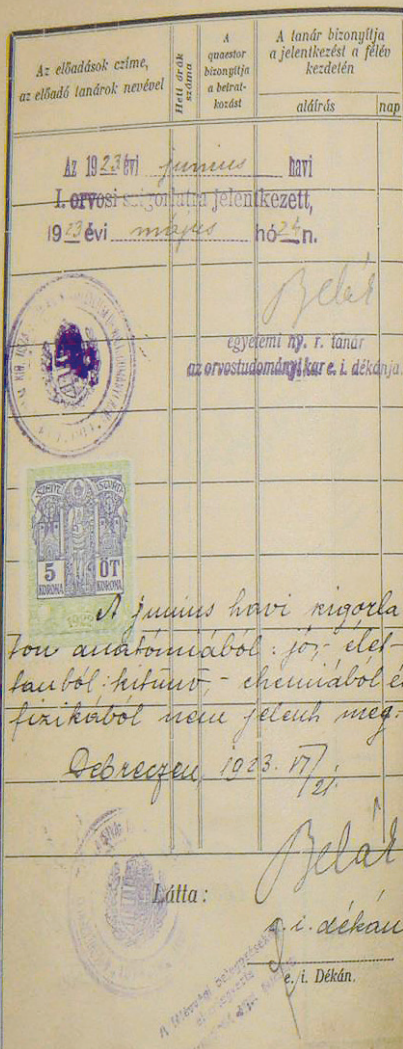 Az előadások czíme,
az előadó tanárok nevével
Heti órák
száma
A
quaestor
bizonyítja
a beirat-
kozást
A tanár bizonyítja
a jelentkezést a félév
kezdetén
aláírás
nap
Az 1923 évi junius havi
I. orvosi szigorlatra jelentkezett,
1923 évi május hó 24 n.
Belák
egyetemi ny. r. tanár
az orvostudományi kar e. i. dékánja.
5
KORONA
ÖT
KORONA
A junius havi szigorla
ton anatómiából: jó,- élet-
tanból: kitünő,- chemiából és
fizikából nem jelent meg.-
Debreczen, 1923. VI/21.
Belák
e. i. dékán
Látta:
e. i. Dékán.